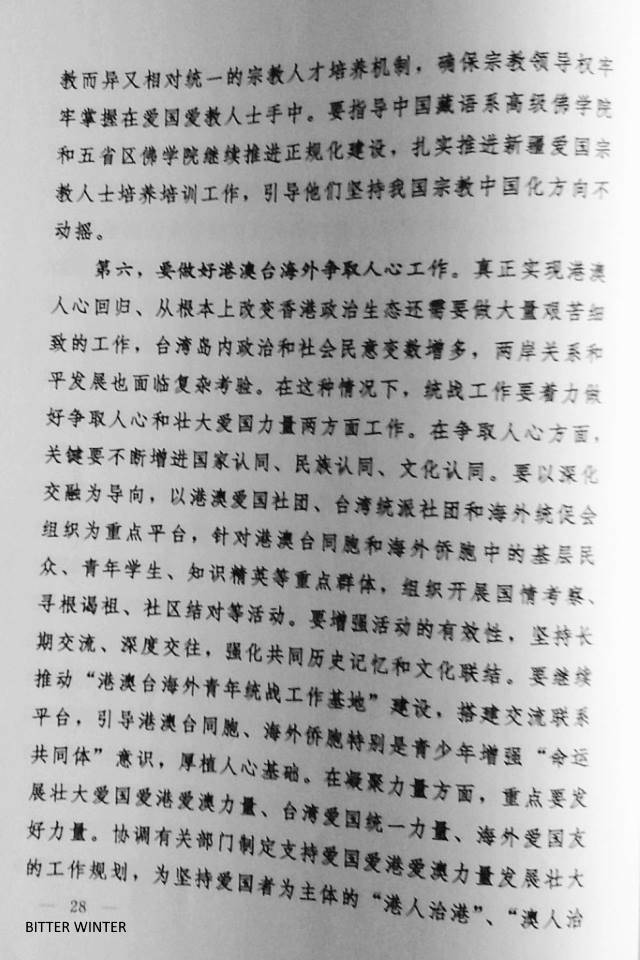 教而异又相对统一的宗教人才培养机制，确保宗教领导权牢
牢掌握在爱国爱教人士手中。要指导中国藏语系高级佛学院
和五省区佛学院继续推进正规化建设，扎实推进新疆爱国宗
教人士培养培训工作，引导他们坚持我国宗教中国化方向不
动摇。
第六，要做好港澳台海外争取人心工作。真正实现港澳
人心回归、从根本上改变香港政治生态还需要做大量艰苦细
致的工作，台湾岛内政治和社会民意变数增多，两岸关系和
平发展也面临复杂考验。在这种情况下，统战工作要着力做
好争取人心和壮大爱国力量两方面工作。在争取人心方面，
关键要不断增进国家认同、民族认同、文化认同。要以深化
交融为导向，以港澳爱国社团、台湾统派社团和海外统促会
组织为重点平台，针对港澳台同胞和海外侨胞中的基层民
众、青年学生、知识精英等重点群体，组织开展国情考察、
寻根谒祖、社区结对等活动。要增强活动的有效性，坚持长
期交流、深度交往，强化共同历史记忆和文化联结。要继续
推动“港澳台海外青年统战工作基地”建设，搭建交流联系
平台，引导港澳台同胞、海外侨胞特别是青少年增强“命运
共同体”意识，厚植人心基础。在凝聚力量方面，重点要发
展壮大爱国爱港爱澳力量、台湾爱国统一力量、海外爱国友
好力量。协调有关部门制定支持爱国爱港爱澳力量发展壮大
的工作规划，为坚持爱国者为主体的“港人治港”、“澳人治
— 28 —
BITTER WINTER